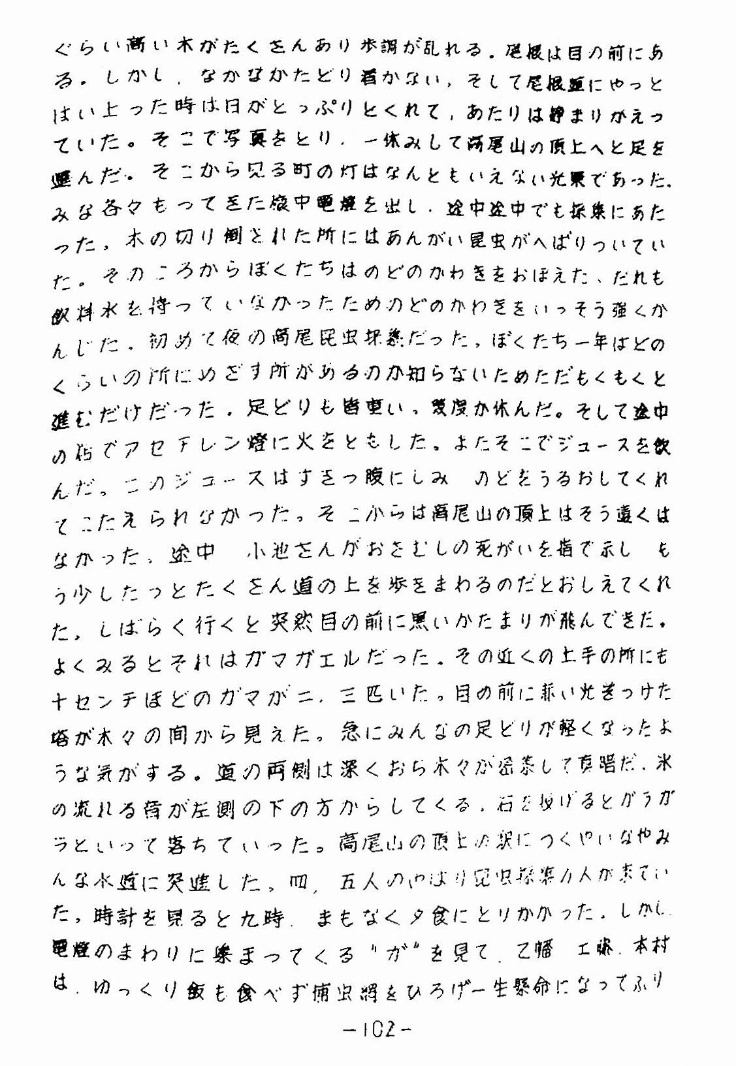 ぐらい高い木がたくさんあり歩調が乱れる。尾根は目の前にあ
る。しかし、なかなかたどり着かない、そして尾根道にやっと
はい上った時は日がとっぷりとくれて、あたりは静まりかえっ
ていた。そこで写真をとり、一休みして高尾山の頂上へと足を
運んだ。そこから見る町の灯はなんともいえない光景であった。
みな各々もってきた懐中電燈を出し、途中途中でも採集にあた
った。木の切り倒された所にはあんがい昆虫がへばりついてい
た。そのころからぼくたちはのどのかわきをおぼえた、だれも
飲料水を持っていなかったためのどのかわきをいっそう強くか
んじた。初めて夜の高尾昆虫採集だった。ぼくたち一年はどの
くらいの所にめざす所があるのか知らないためただもくもくと
進むだけだった。足どりも皆重い、幾度か休んだ。そして途中
の店でアセチレン燈に火をともした。またそこでジュースを飲
んだ。このジュースはすきっ腹にしみ のどをうるおしてくれ
てこたえられなかった。そこからは高尾山の頂上はそう遠くは
なかった、途中 小池さんがおさむしの死がいを指で示し も
う少したつとたくさん道の上を歩きまわるのだとおしえてくれ
た。しばらく行くと突然目の前に黒いかたまりが飛んできた。
よくみるとそれはガマガエルだった。その近くの土手の所にも
十センチほどのガマが二、三匹いた。目の前に赤い光をつけた
塔が木々の間から見えた。急にみんなの足どりが軽くなったよ
うな気がする。道の両側は深くおち木々が密茶して真暗だ、水
の流れる音が左側の下の方からしてくる。石を投げるとガラガ
ラといって落ちていった。高尾山の頂上の駅につくやいなやみ
んな水道に突進した。四、五人のやはり昆虫採集の人が来てい
た。時計を見ると九時、まもなく夕食にとりかかった。しかし
電燈のまわりに集まってくる“ガ”を見て、乙幡 工藤、本村
は、ゆっくり飯も食べず捕虫網をひろげ一生懸命になってふり
－102－